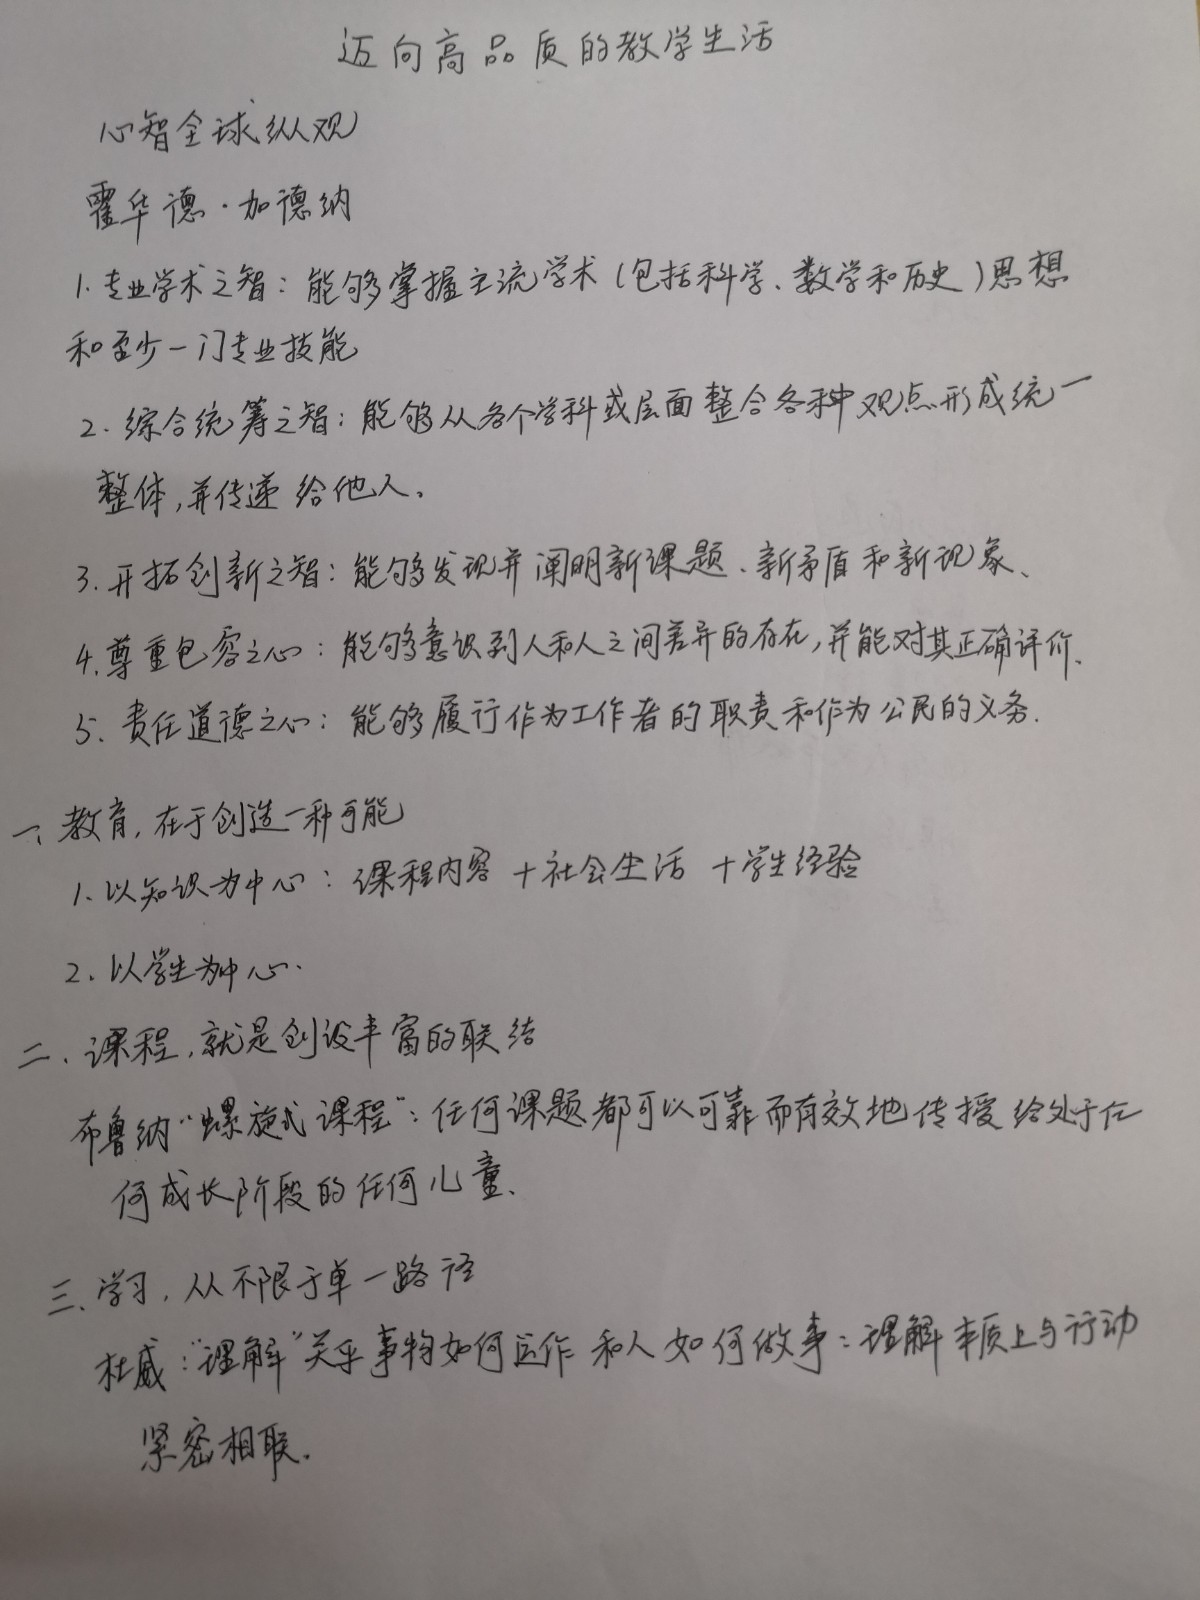 迈向高品质的教学生活
心智全球纵观
霍华德·加德纳
1.专业学术之智：能够掌握主流学术（包括科学、数学和历史）思想
和至少一门专业技能
2.综合统筹之智：能够从各个学科或层面整合各种观点形成统一
整体，并传递给他人。
3.开拓创新之智：能够发现并阐明新课题、新矛盾和新现象、
4.尊重包容之心：能够意识到人和人之间差异的存在，并能对其正确评价、
5.责任道德之心：能够履行作为工作者的职责和作为公民的义务.
一、教育，在于创造一种可能
1.以知识为中心：课程内容+社会生活+学生经验
2.以学生为中心.
二、课程，就是创设丰富的联结
布鲁纳“螺旋式课程”：任何课题都可以可靠而有效地传授给处于任
何成长阶段的任何儿童、
三、学习，从不限于单一路径
杜威：“理解”关乎事物如何运作和人如何做事：理解本质上与行动
紧密相联.